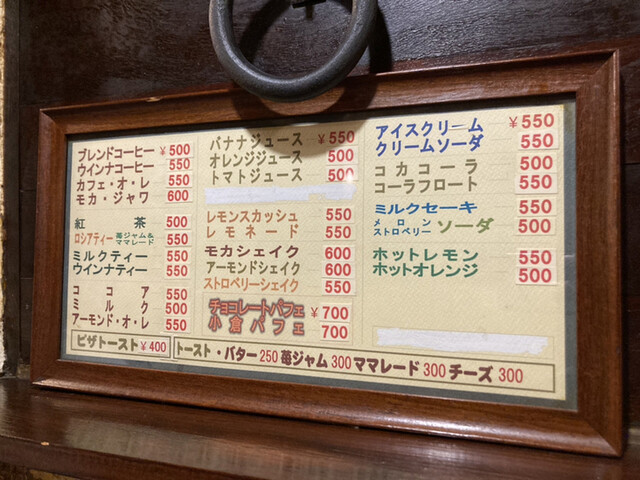 ブレンドコーヒー ¥500
ウインナコーヒー 550
カフェ・オ・レ 550
モカ・ジャワ 600
紅茶 500
ロシアティー 苺ジャム& ママレード 550
ミルクティー 550
ウインナティー 550
ココア 550
ミルク 500
アーモンド・オ・レ 550
バナナジュース ¥550
オレンジジュース 500
トマトジュース 500
レモンスカッシュ 550
レモネード 550
モカシェイク 600
アーモンドシェイク 600
ストロベリーシェイク 550
チョコレートパフェ ¥700
小倉パフェ 700
アイスクリーム ¥550
クリームソーダ 550
コカコーラ 500
コーラフロート 550
ミルクセーキ 550
メロン ストロベリー ソーダ 500
ホットレモン 550
ホットオレンジ 500
ピザトースト ¥400
トースト・バター 250 苺ジャム 300 ママレード 300 チーズ 300